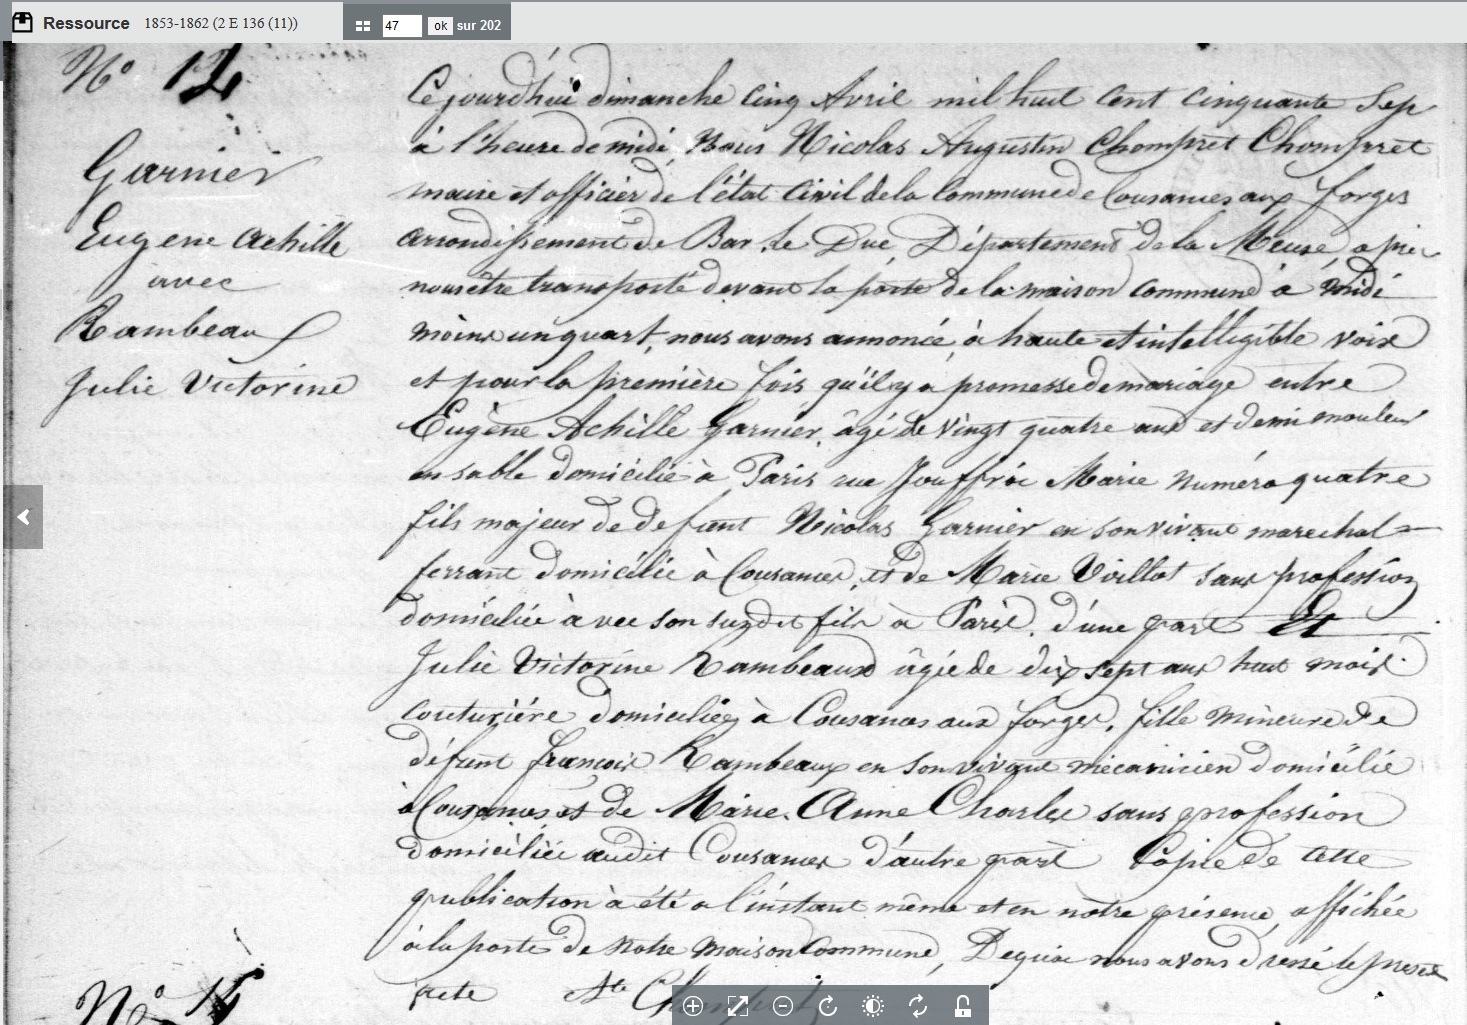 Ressource 1853-1862 (2 E 136 (11)) 47 ok sur 202
N° 12
Garnier
Eugène Achille
avec
Rambeau
Julie Victorine
Cejourd'hui dimanche cinq Avril mil huit cent cinquante Sep
à l'heure de midi, Nous Nicolas Augustin Chompret Chompret
maire et officier de l'état Civil de la Commune de Cousances aux forges
arrondissement de Bar le Duc, Département de la Meuse, apres
nous être transporté devant la porte de la maison commune à midi
moins un quart, nous avons annoncé, à haute et intelligible voix
et pour la première fois qu'il y a promesse de mariage entre
Eugène Achille Garnier, âgé de vingt quatre ans et demi mouleur
en sable domicilié à Paris rue Jouffroi Marie numéro quatre
fils majeur de defunt Nicolas Garnier en son vivant marechal
ferrant domicilié à Cousances, et de Marie Voillot sans profession
domiciliée avec son susdit fils à Paris, d'une part Et
Julie Victorine Rambeaux âgée de dix sept ans huit mois
couturière domiciliée à Cousances aux forges, fille mineure de
défunt françois Rambeaux en son vivant mécanicien domicilié
à Cousances et de Marie Anne Charles sans profession
domiciliée audit Cousances d'autre part Copie de cette
publication à été a l'instant même et en notre présence, affichée
à la porte de notre maison Commune, Dequoi nous avons dressé le present
acte
N°